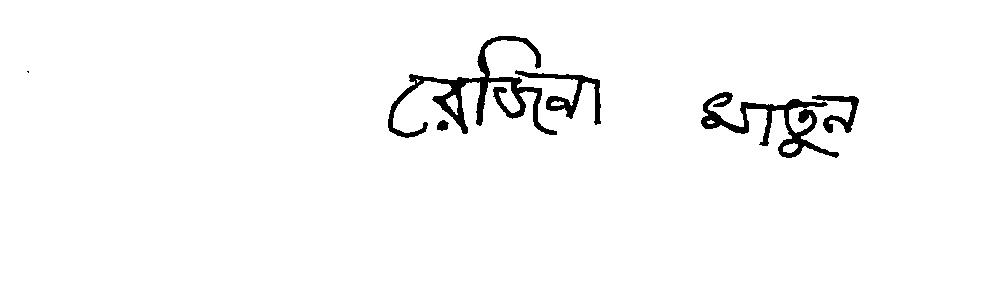 রেজিনা খাতুন